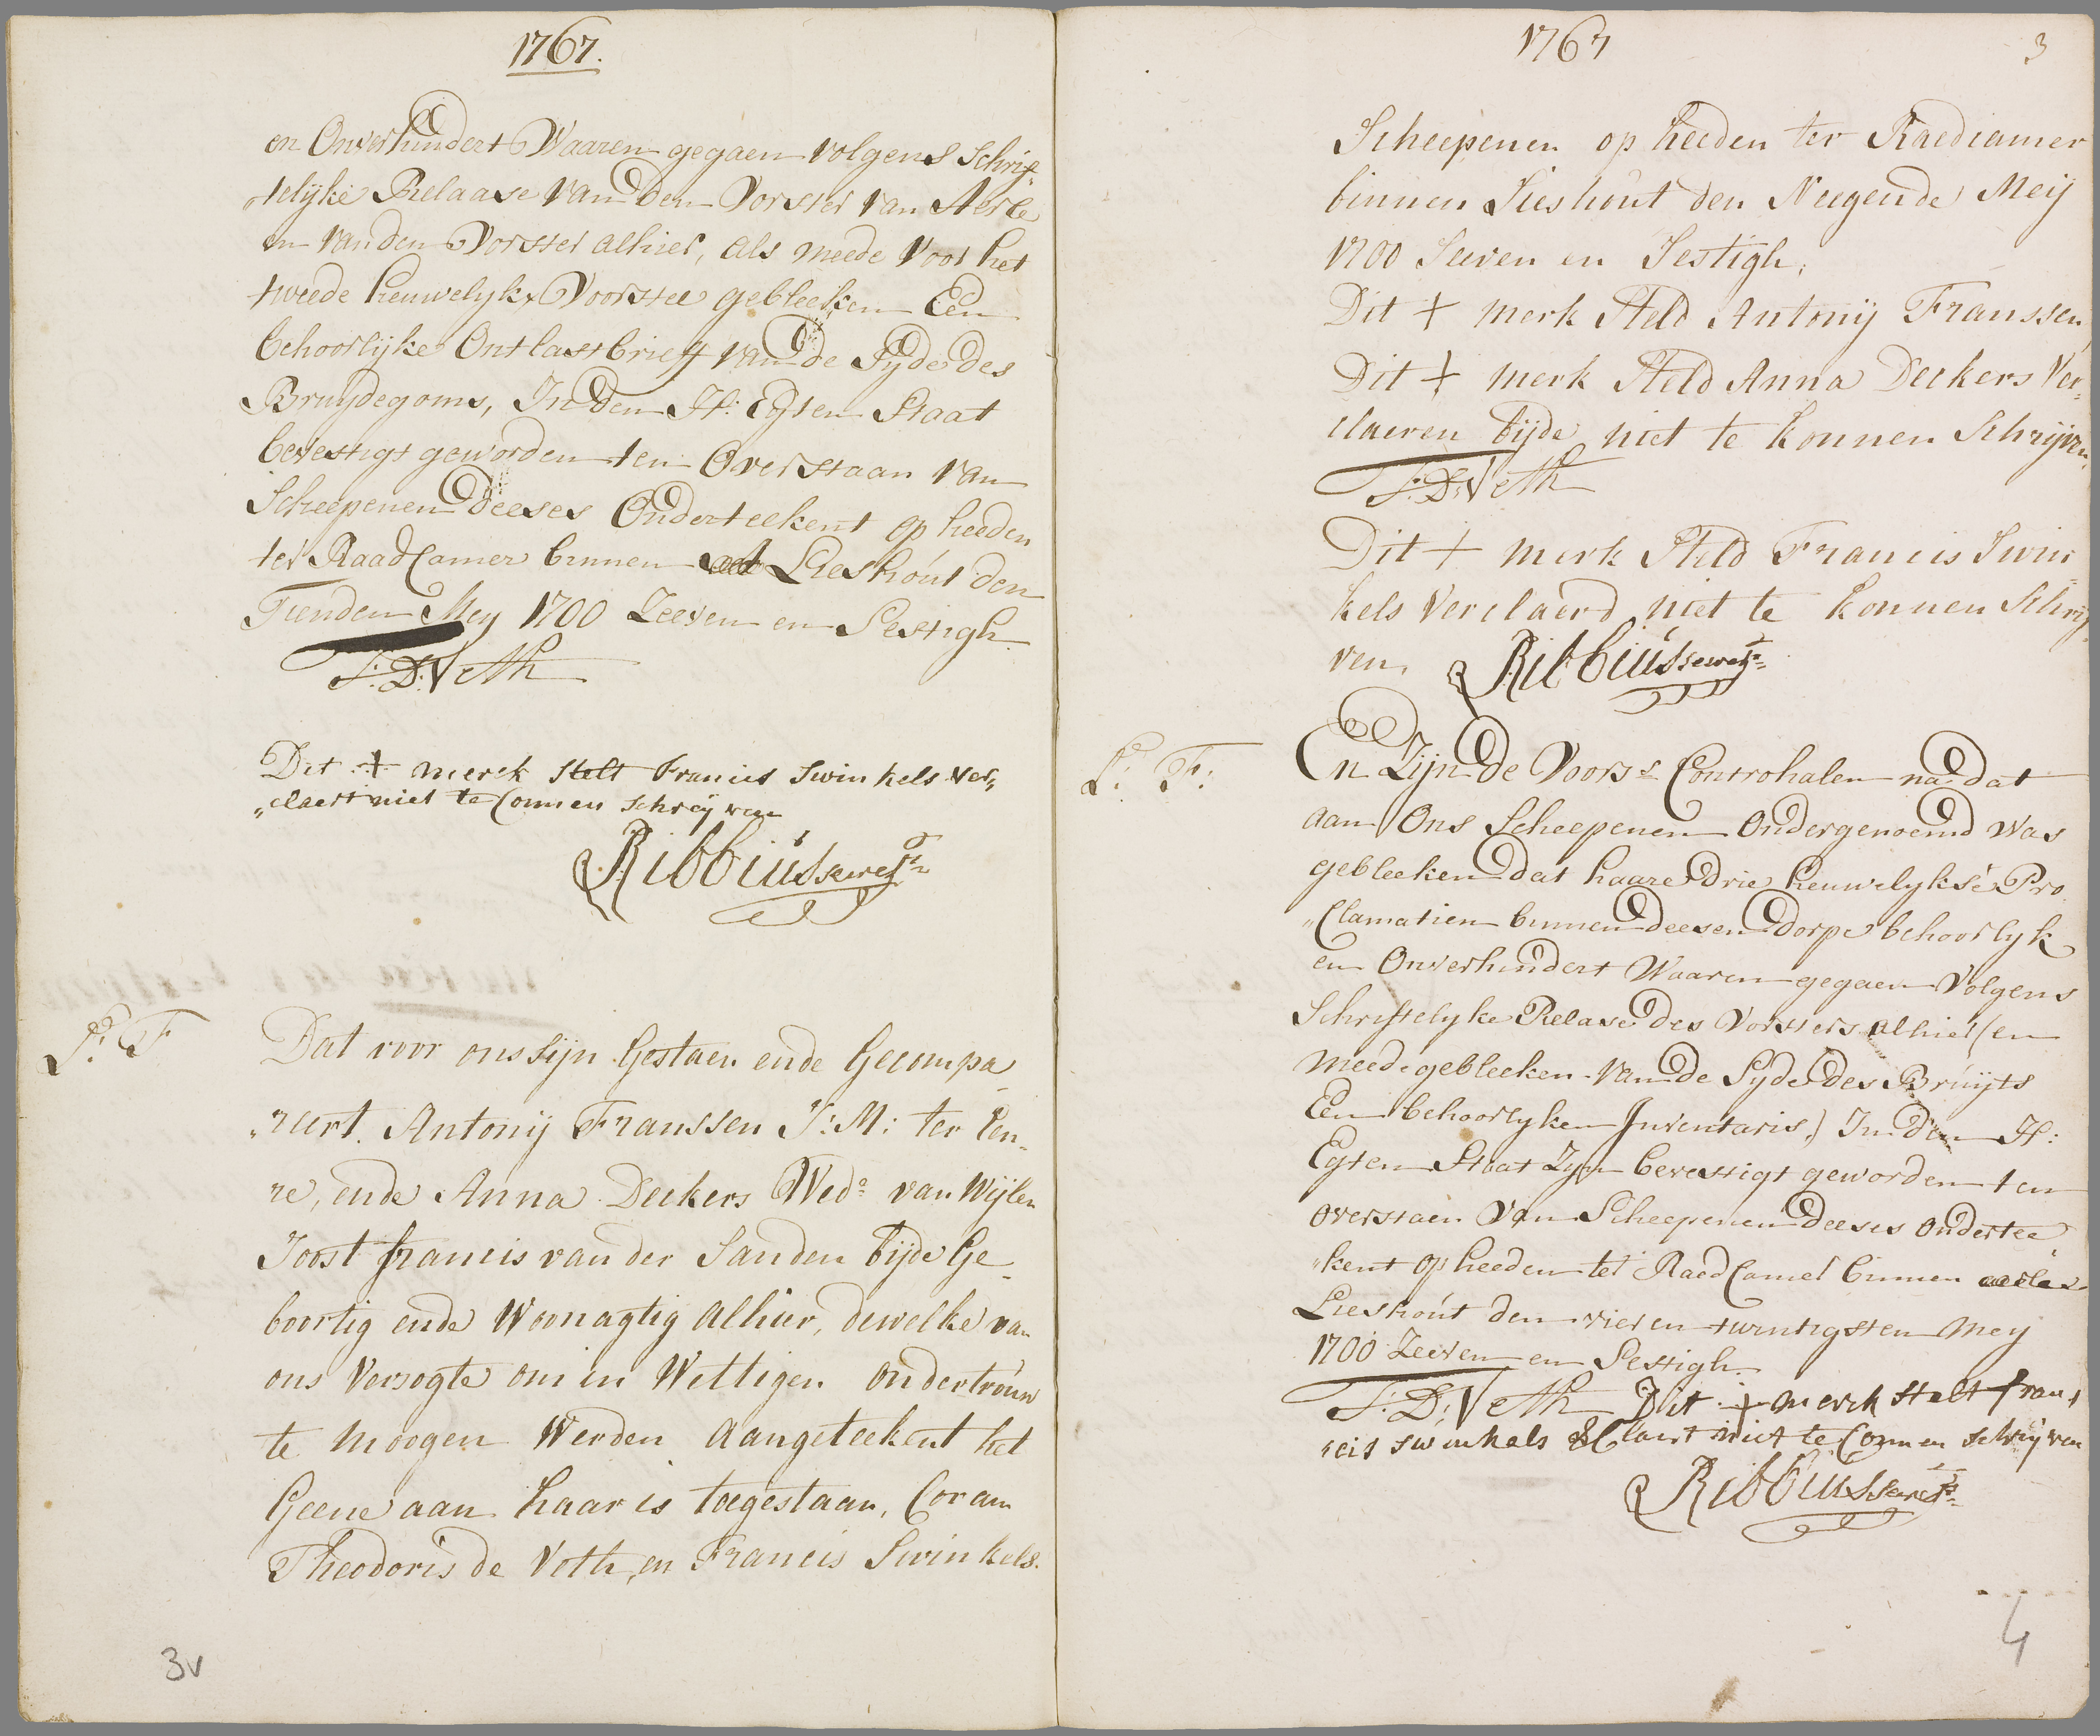 1767.
en Onverhindert Waaren gegaen volgens Schrif„
telijke Relaase van den Vorster van Aerle
en van den Vorster alhier, als meede voor het
tweede heuwelykx Voorstel gebleeken Een
behoorlijke Ontlastbrieff van de Syde des
Bruijdegoms, In den H: Egten Staat
bevestigt geworden ten Overstaan van
Scheepenen deeses Onderteekent op heeden
ter Raad Camer binnen Lieshout den
Tienden Mey 1700 Zeeven en Sestigh
T: D: Veth
Dit + merck stelt Francis Swinkels ver„
„claert niet te Connen schreijven
Ribbius secrets
P: F
Dat voor ons sijn Gestaen ende Gecompa„
„reert Antonij Franssen J: M: ter Een„
re, ende Anna Deckers Wedе van Wijlen
Joost francis van der Sanden bijde Ge„
boortig ende Woonagtig alhier, dewelke van
ons versogte om in Wettigen ondertrouw
te moogen Werden aangeteekent het
Geene aan haar is toegestaan, Coram
Theodoris de Voth, en Francis Swinkels.
3v
1767
3
Scheepenen op heeden ter Raedcamer
binnen Lieshout den Neegende Meij
1700 Seeven en Sestigh,
Dit + merk Steld Antonij Franssen,
Dit + merk Steld Anna Deckers Ver„
claeren bijde niet te konnen Schrijven,
T: D: Veth
Dit + merk Steld Francis Swin„
kels Verclaerd niet te konnen Schrij„
ven, Ribbius secrets
P: F:
En Zijn de Voorss Controhalen na dat
aan Ons Scheepenen Ondergenoemd was
gebleeken dat haare drie heuwelykse Pro
„Clamatien binnen deesen dorpe behoorlyk
en Onverhindert Waaren gegaen Volgens
Schriftelyke Relase des Vorsters alhier (en
meede gebleeken van de Syde des Bruijts
Een behoorlyken Inventaris,) In den H:
Egten Staat Zyn bevestigt geworden ten
overstaen van Scheepenen deeses ondertee„
„kent op heeden ter Raed Camer binnen aerle
Lieshout den vier en twintigsten Mey
1700 Zeeven en Sestigh
T: D: Veth Dit + merck stelt fran„
„cis swinkels &Claert niet te Connen schrijven
Ribbius secrets
4